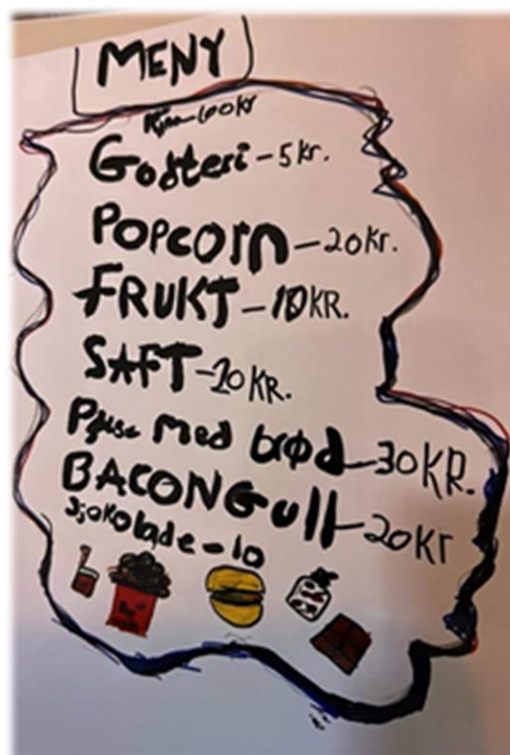 MENY
60kr
Godteri - 5 kr.
POPCORN - 20 kr.
FRUKT - 10 KR.
SAFT - 20 KR.
Pølse med brød - 30 KR.
BACONGull - 20 Kr
Sjokolade - 10